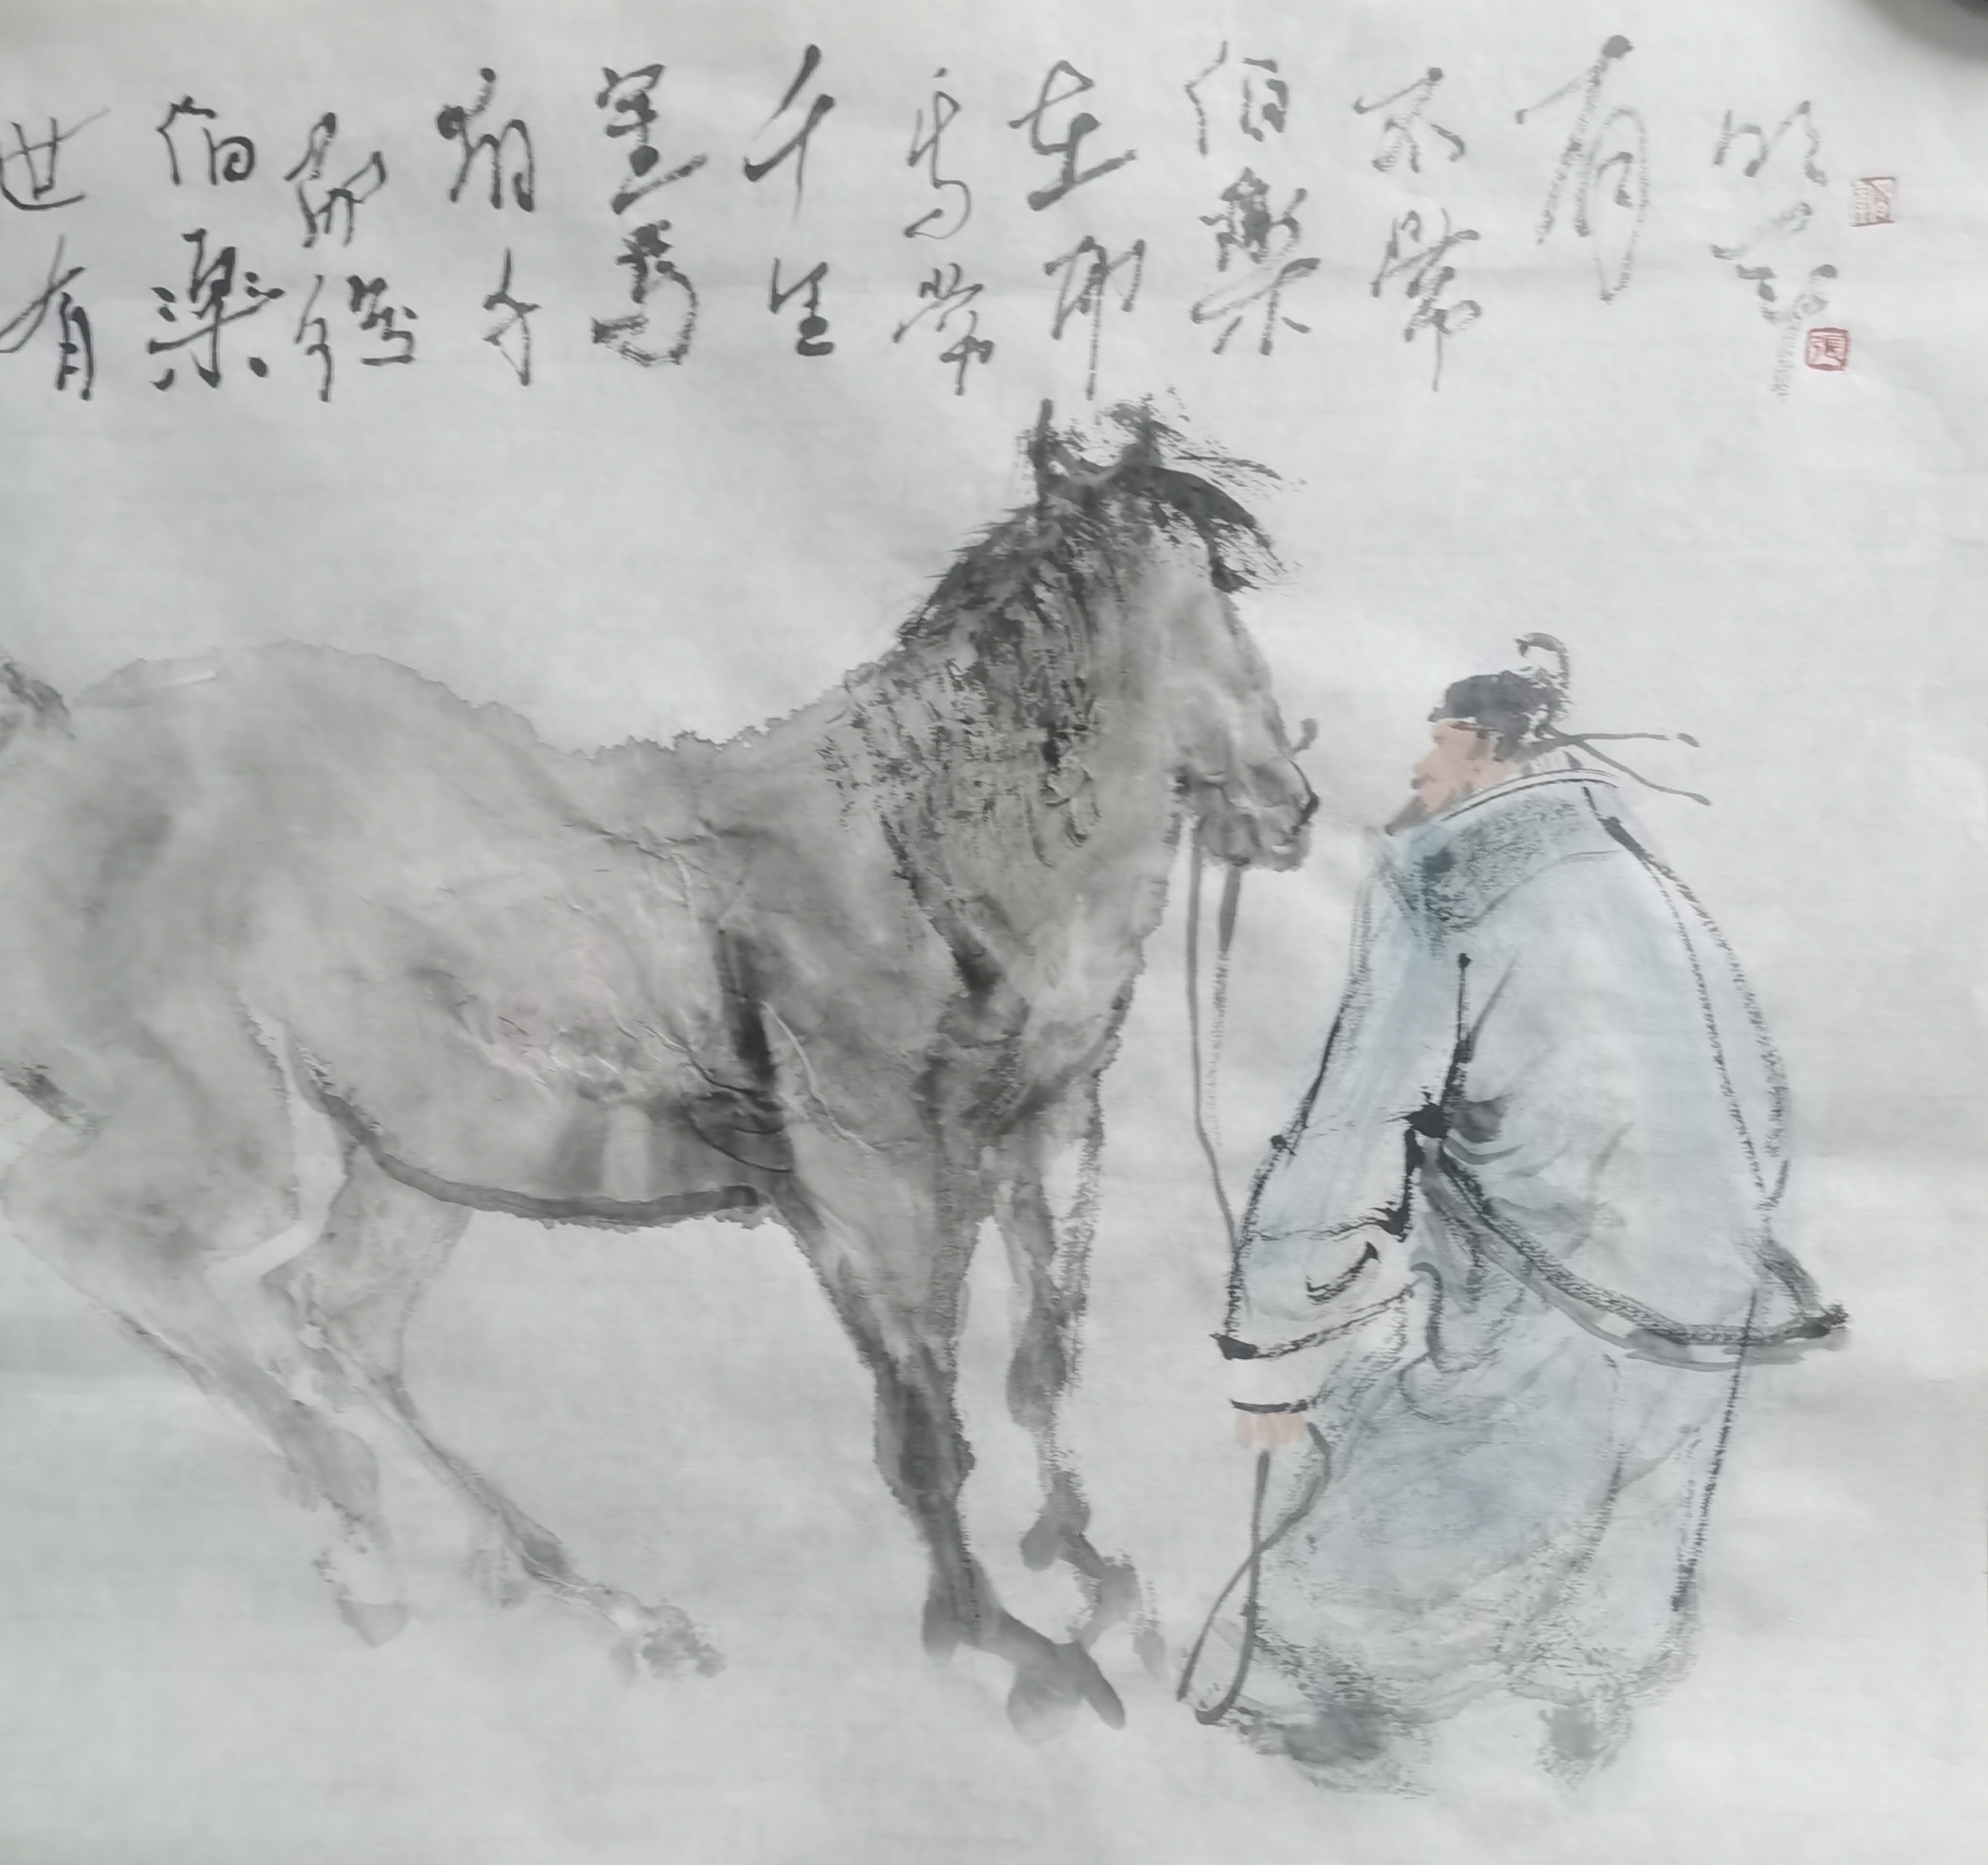 世有
伯樂
然後
有千
里馬
千里
馬常
有而
伯樂
不常
有
張